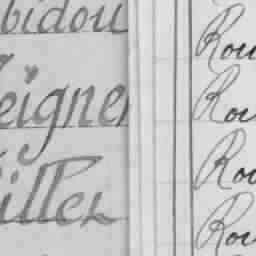 bidou
eigner
iller
Rou
Rou
Rou
Rou